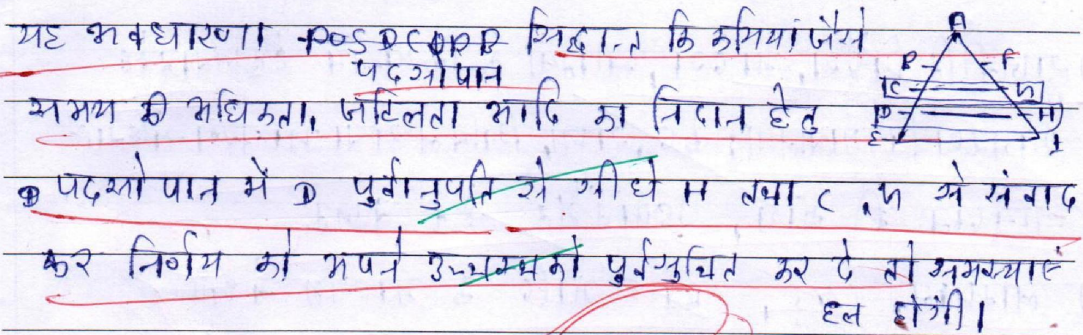 यह अवधारणा सिद्धान्त कि कमियां जैसे
पदसोपान
समय की अधिकता, जटिलता आदि का निदान हेतु
पदसोपान में D पुर्वानुमति से सीधे H तथा C, G से संवाद
कर निर्णय को अपने उच्चस्थ को पुर्नसुचित कर दे तो समस्याएं
हल होगी।
A
B F
C G
D H
E I